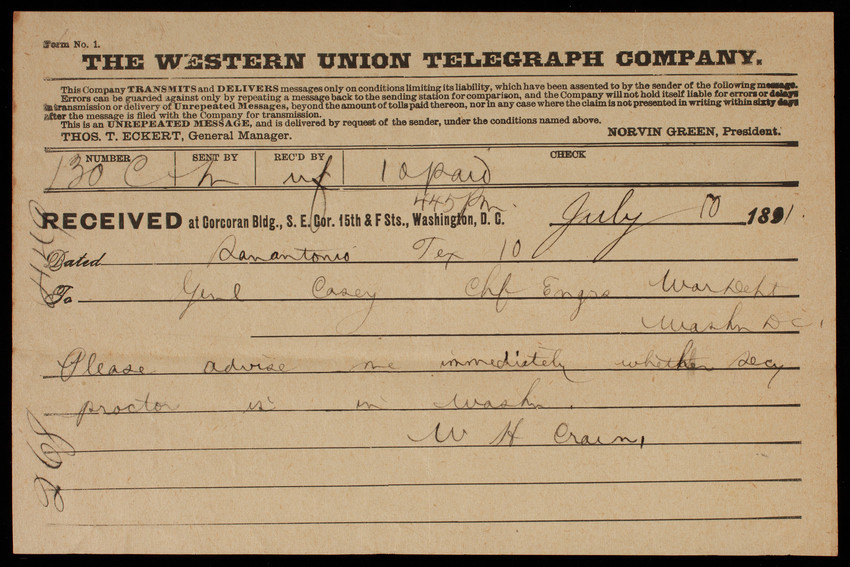 Form No. 1.
THE WESTERN UNION TELEGRAPH COMPANY.
This Company TRANSMITS and DELIVERS messages only on conditions limiting its liability, which have been assented to by the sender of the following message.
Errors can be guarded against only by repeating a message back to the sending station for comparison, and the Company will not hold itself liable for errors or delays
in transmission or delivery of Unrepeated Messages, beyond the amount of tolls paid thereon, nor in any case where the claim is not presented in writing within sixty days
after the message is filed with the Company for transmission.
This is an UNREPEATED MESSAGE, and is delivered by request of the sender, under the conditions named above.
THOS. T. ECKERT, General Manager. NORVIN GREEN, President.
NUMBER SENT BY REC'D BY CHECK
130 C 10 paid
445 pm
RECEIVED at Corcoran Bldg., S. E. Cor. 15th & F Sts., Washington, D. C. July 10 1891.
Dated San antonio Tex 10
To Genl Casey Chf Engrs War Dept
Washn DC,
Please advise me immediately whether Secy
proctor is in Washn.
W H Crain,
268